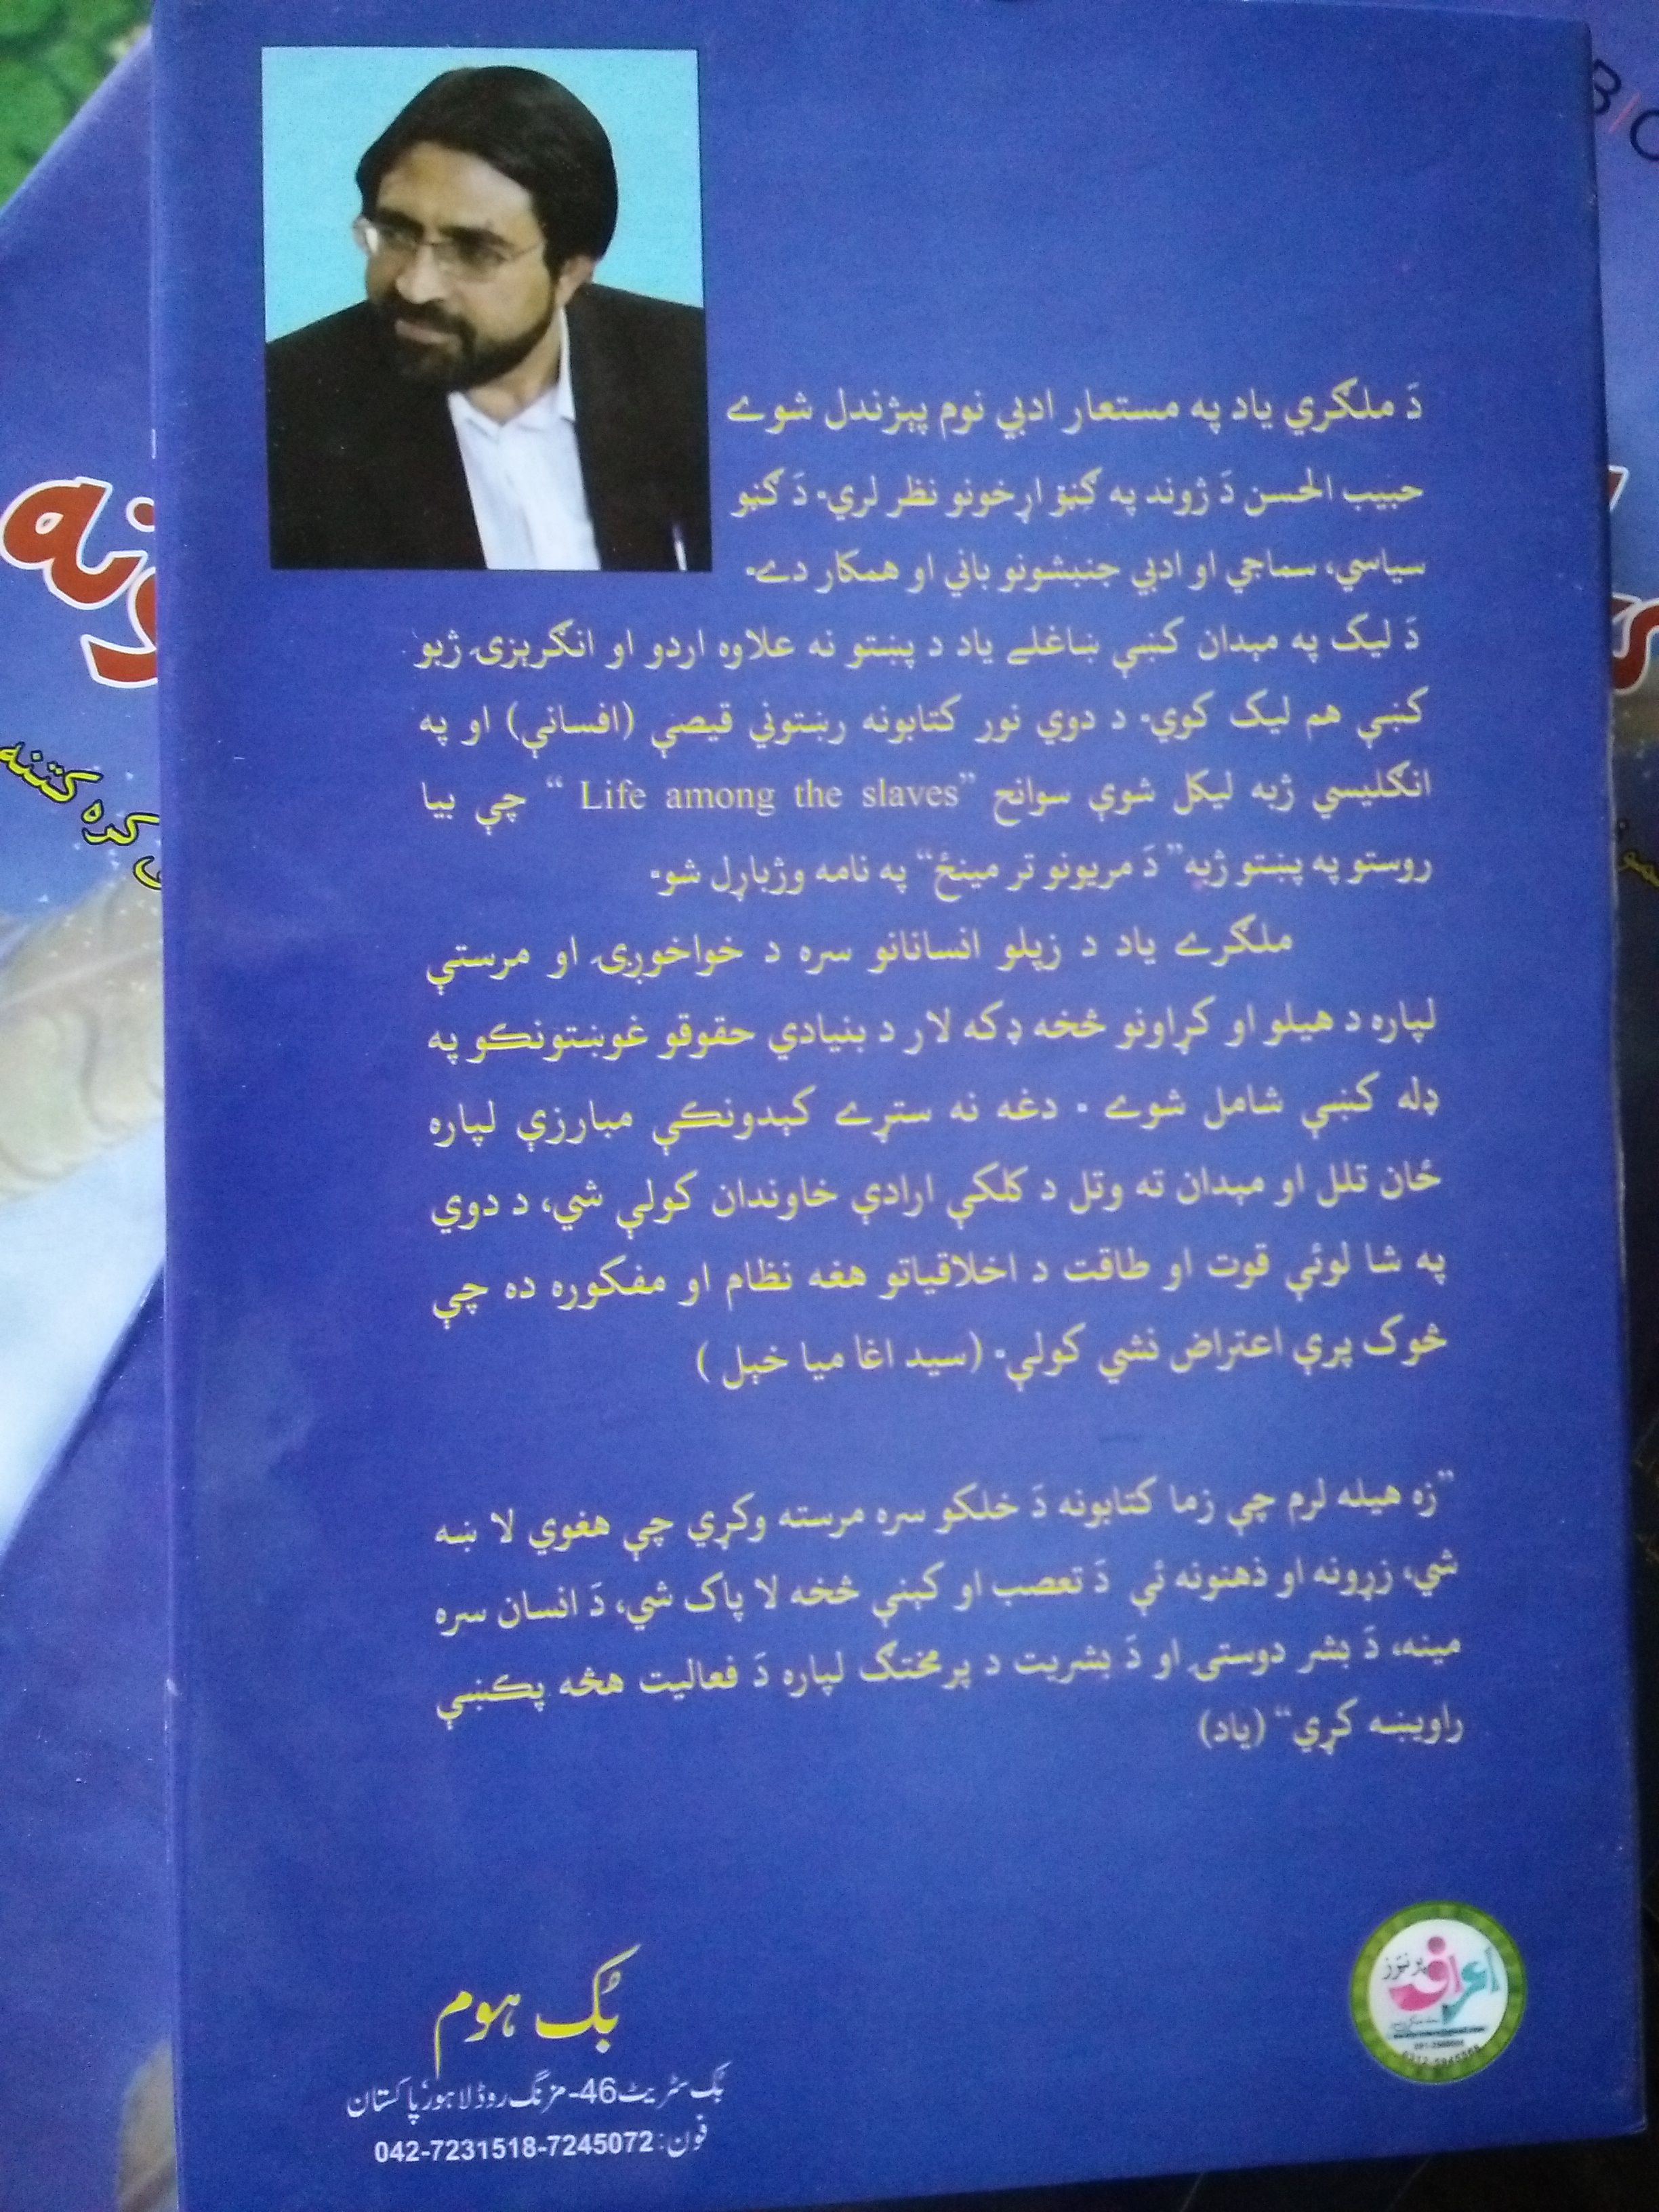 دَ ملګري ياد په مستعار ادبي نوم پېژندل شوے
حبيب الحسن دَ ژوند په ګڼو اړخونو نظر لري۔ دَ ګڼو
سياسي، سماجي او ادبي جنبشونو باني او همکار دے۔
دَ ليک په مېدان کښې ښاغلے ياد د پښتو نه علاوه اردو او انګرېزۍ ژبو
کښې هم ليک کوي۔ د دوي نور کتابونه رښتوني قيصې (افسانې) او په
انګليسي ژبه ليکل شوې سوانح ”Life among the slaves“ چې بيا
روستو په پښتو ژبه” دَ مريونو تر مينځ“ په نامه وژباړل شو۔
ملګرے ياد د زپلو انسانانو سره د خواخوږۍ او مرستې
لپاره د هيلو او کړاونو څخه ډکه لار د بنيادي حقوقو غوښتونکو په
ډله کښې شامل شوے ۔ دغه نه ستړے کېدونکې مبارزې لپاره
ځان تلل او مېدان ته وتل د کلکې ارادې خاوندان کولې شي، د دوي
په شا لوئې قوت او طاقت د اخلاقياتو هغه نظام او مفکوره ده چې
څوک پرې اعتراض نشي کولې۔ (سيد اغا ميا خېل )
”زه هيله لرم چې زما کتابونه دَ خلکو سره مرسته وکړي چې هغوي لا ښه
شي، زړونه او ذهنونه ئې دَ تعصب او کېنې څخه لا پاک شي، دَ انسان سره
مينه، دَ بشر دوستۍ او دَ بشريت د پرمختګ لپاره دَ فعاليت هڅه پکښې
راويښه کړي“ (ياد)
اعراف پرنټرز
بُک ہوم
بک سٹریٹ 46-مزنگ روڈ لاہور پاکستان
فون: 042-7231518-7245072